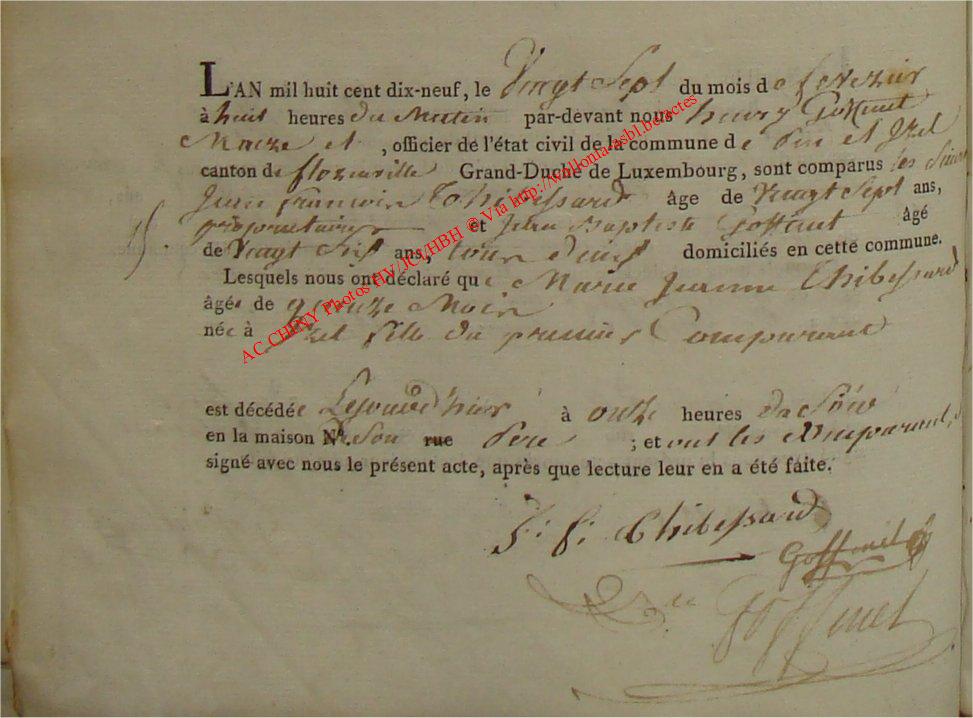 L'AN mil huit cent dix-neuf, le Vingt Sept du mois de fevrier
à huit heures du Matin par-devant nous henry Goffinet
Maire et, officier de l'état civil de la commune de Pin et Izel
canton de florenville Grand-Duché de Luxembourg, sont comparus les Sieurs
Jean françois Thibessard âge de Vingt Sept ans,
15. propriétaire et Jean Baptiste Goffinet âgé
de Vingt Sept ans, domiciliés en cette commune.
Lesquels nous ont déclaré que Marie Jeanne Thibessard
âgée de Mois
née à Izel fille du premier Comparant
est décédée Lejour d'hier à onze heures du Soir
en la maison N°. de son rue Pere ; et ont les Comparants
signé avec nous le présent acte, après que lecture leur en a été faite.
J. f. Thibessard
Goffinet
Goffinet
AC CHINY Photos HV/JCI/HBH © Via http://wallonia-asbl.be/actes